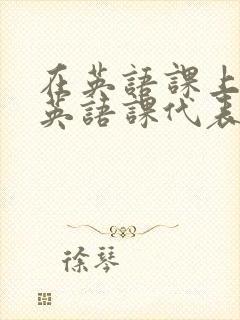 在英語課上
英語課代表
徐琴